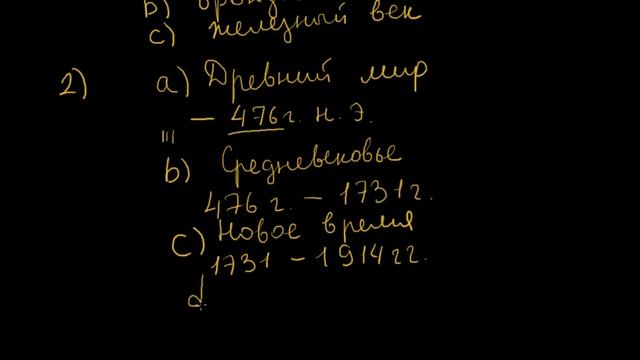 b)
c) железный век
2) a) Древний мир
— 476 г. н. э.
III
b) Средневековье
476 г. — 1731 г.
c) Новое время
1731 — 1914 гг.
d